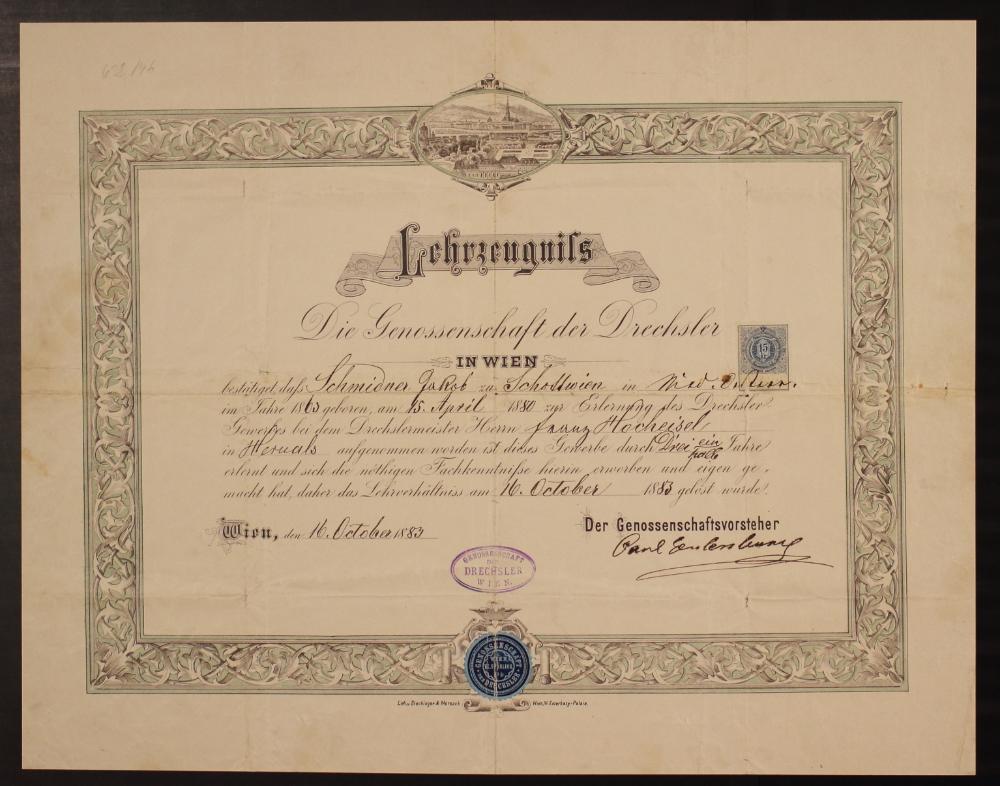 Lehrzeugniſs
Die Genossenschaft der Drechsler
IN WIEN
15
bestätiget, daſs Schmidner Jakob zu Schottwien in Nied. Österr.
im Jahre 1863 geboren, am 15. April 1880 zur Erlernung des Drechsler
Gewerbes bei dem Drechslermeister Herrn Franz Hocheisel
in Hernals aufgenommen worden ist dieses Gewerbe durch Drei ein halb Jahre
erlernt und sich die nöthigen Fachkenntniſse hierin erworben und eigen ge-
macht hat, daher das Lehrverhältniss am 16. October 1883 gelöst wurde.
Wien, den 16. October 1883
Der Genossenschaftsvorsteher
GENOSSENSCHAFT
DER
DRECHSLER
WIEN.
GENOSSENSCHAFT
WIEN
DER DRECHSLER